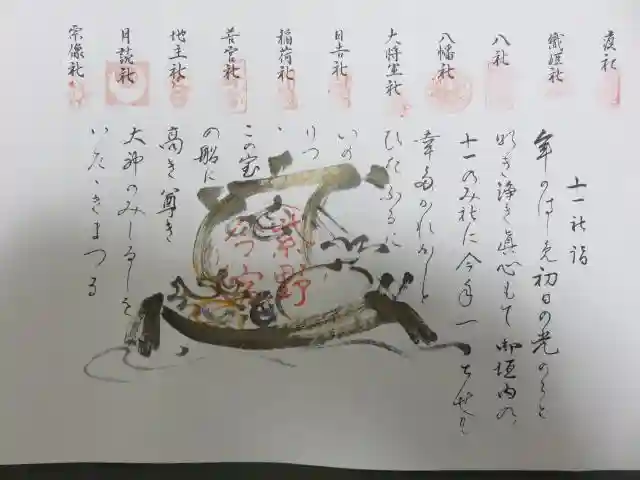 疫社
織姫社
八社
八幡社
大将軍社
日吉社
稲荷社
若宮社
地主社
月読社
宗像社
十一社詣
年のはしめ初日の光のこと
明き浄き眞心もて御垣内の
十一のみ社に今年一とせも
幸多かれかしと
ひたふるに
いの
りつ
この宝
の船に
高き尊き
大神のみしるしを
いたゝきまつる
紫野
今宮